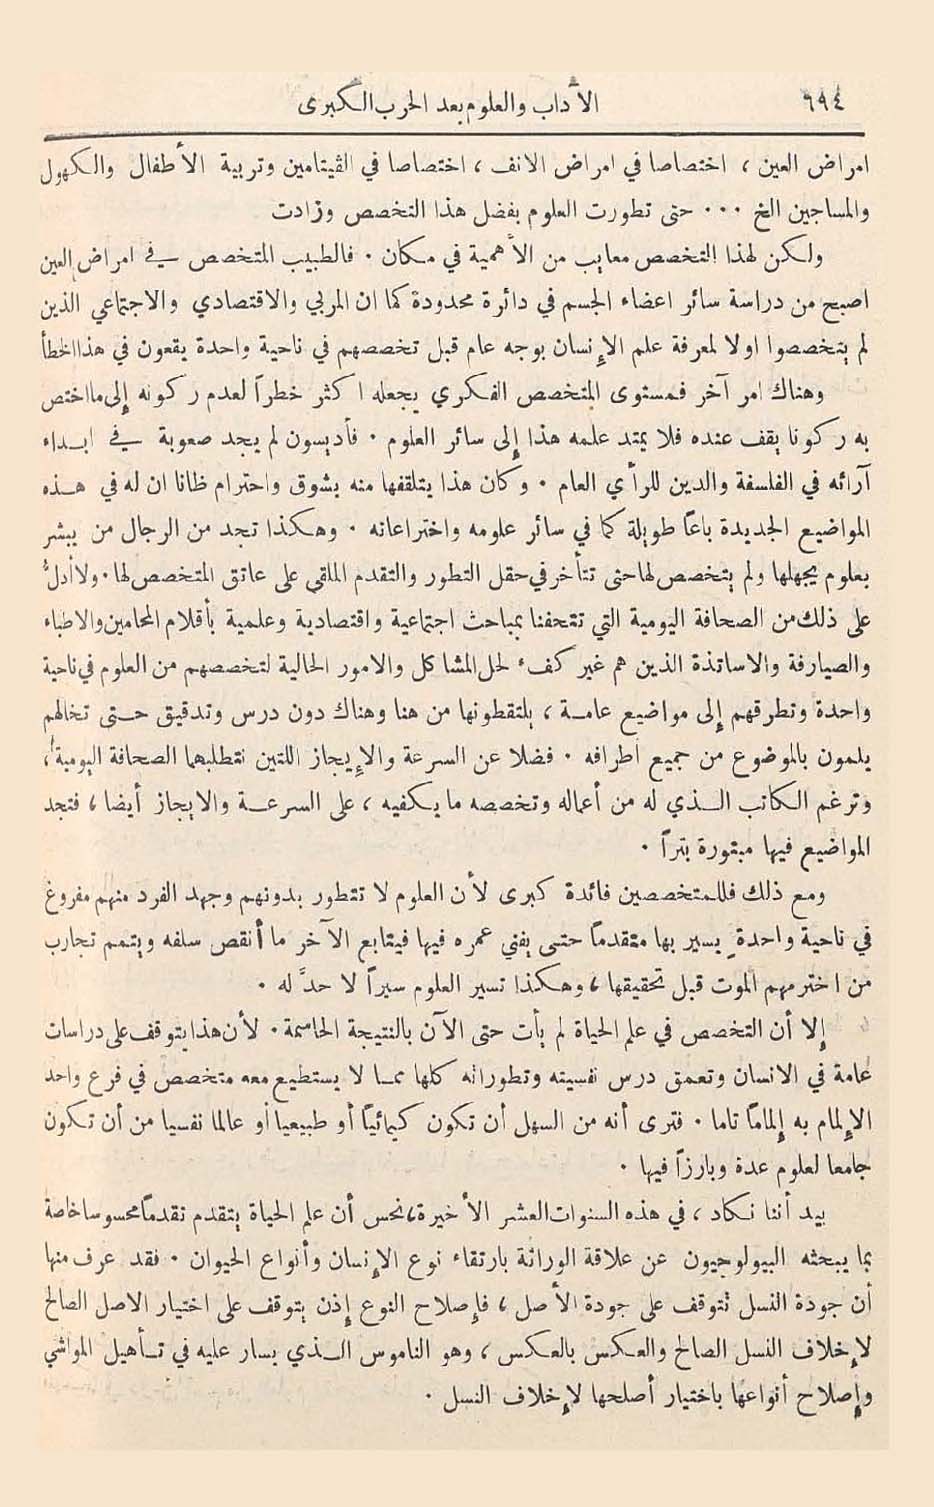 ٦٩٤
الآداب والعلوم بعد الحرب الكبرى
امراض العين ، اختصاصا في امراض الانف ، اختصاصا في الڤيتامين وتربية الأطفال والكهول
والمساجين الخ ... حتى تطورت العلوم بفضل هذا التخصص وزادت
ولكن لهذا التخصص معايب من الأهمية في مكان . فالطبيب المتخصص في امراض العين
اصبح من دراسة سائر اعضاء الجسم في دائرة محدودة كما ان المربي والاقتصادي والاجتماعي الذين
لم يتخصصوا اولا لمعرفة علم الإنسان بوجه عام قبل تخصصهم في ناحية واحدة يقعون في هذا الخطأ
وهناك امر آخر فمستوى المتخصص الفكري يجعله اكثر خطراً لعدم ركونه إلى ما اختص
به ركونا يقف عنده فلا يمتد علمه هذا إلى سائر العلوم . فأديسون لم يجد صعوبة في ابداء
آرائه في الفلسفة والدين للرأي العام . وكان هذا يتلقفها منه بشوق واحترام ظانا ان له في هذه
المواضيع الجديدة باعاً طويلة كما في سائر علومه واختراعاته . وهكذا تجد من الرجال من يبشر
بعلوم يجهلها ولم يتخصص لها حتى تتأخر في حقل التطور والتقدم الملقى على عاتق المتخصص لها . ولا أدلُّ
على ذلك من الصحافة اليومية التي تتحفنا بمباحث اجتماعية واقتصادية وعلمية بأقلام المحامين والاطباء
والصيارفة والاساتذة الذين هم غير كفء لحل المشاكل والامور الحالية لتخصصهم من العلوم في ناحية
واحدة وتطرقهم إلى مواضيع عامة ، يلتقطونها من هنا وهناك دون درس وتدقيق حتى تخالهم
يلمون بالموضوع من جميع أطرافه . فضلا عن السرعة والإيجاز اللتين تتطلبهما الصحافة اليومية ،
وترغم الكاتب الذي له من أعماله وتخصصه ما يكفيه ، على السرعة والايجاز أيضا ، فتجد
المواضيع فيها مبتورة بتراً .
ومع ذلك فللمتخصصين فائدة كبرى لأن العلوم لا تتطور بدونهم وجهد الفرد منهم مفروغ
في ناحية واحدةٍ يسير بها متقدماً حتى يفني عمره فيها فيتابع الآخر ما أنقص سلفه ويتمم تجارب
من اخترمهم الموت قبل تحقيقها ، وهكذا تسير العلوم سيراً لا حدَّ له .
إلا أن التخصص في علم الحياة لم يأت حتى الآن بالنتيجة الحاسمة . لأن هذا يتوقف على دراسات
عامة في الانسان وتعمق درس نفسيته وتطوراته كلها مما لا يستطيع معه متخصص في فرع واحد
الإلمام به إلماماً تاما . فترى أنه من السهل أن تكون كيمائيّاً أو طبيعيا أو عالما نفسيا من أن تكون
جامعا لعلوم عدة وبارزاً فيها .
بيد أننا نكاد ، في هذه السنوات العشر الأخيرة ، نحس أن علم الحياة يتقدم تقدماً محسوسا خاصة
بما يبحثه البيولوجيون عن علاقة الوراثة بارتقاء نوع الإنسان وأنواع الحيوان . فقد عرف منها
أن جودة النسل تتوقف على جودة الأصل ، فإصلاح النوع إذن يتوقف على اختيار الاصل الصالح
لإخلاف النسل الصالح والعكس بالعكس ، وهو الناموس الذي يسار عليه في تأهيل المواشي
وإصلاح أنواعها باختيار أصلحها لإخلاف النسل .